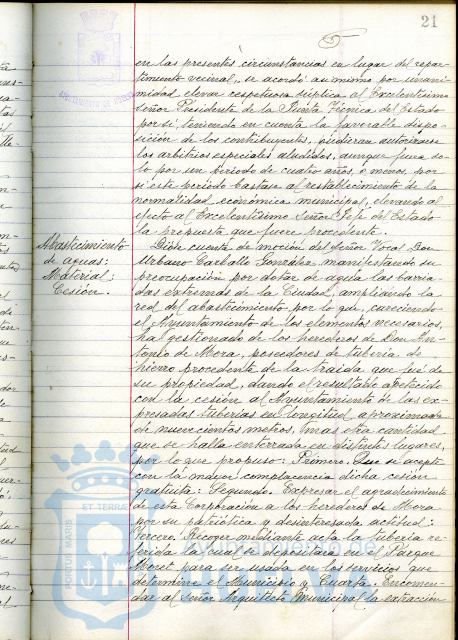 21
en las presentes circunstancias en lugar del repar-
timiento vecinal, se acordó asimismo por unani-
midad elevar respetuosa súplica al Excelentísimo
Señor Presidente de la Junta Técnica del Estado
por si, teniendo en cuenta la favorable dispo-
sición de los contribuyentes, pudieran autorizarse
los arbitrios especiales aludidos, aunque fuera so-
lo por un período de cuatro años, o menos, por
si este período bastase al restablecimiento de la
normalidad económica municipal, elevando al
efecto al Excelentísimo Señor Jefe del Estado
la propuesta que fuere procedente.
Abastecimiento
de aguas:
Material:
Cesión.
Dióse cuenta de moción del Señor Vocal Don
Urbano Carballo González, manifestando su
preocupación por dotar de agua las barria-
das extremas de la Ciudad, ampliando la
red del abastecimiento por lo que, careciendo
el Ayuntamiento de los elementos necesarios,
ha gestionado de los herederos de Don An-
tonio de Mora, poseedores de tubería de
hierro procedente de la traida que fué de
su propiedad, dando el resultado apetecido
con la cesión al Ayuntamiento de las ex-
presadas tuberías en longitud aproximada
de nuevecientos metros, mas otra cantidad
que se halla enterrada en distintos lugares,
por lo que propuso: Primero. Que se acepte
con la mayor complacencia dicha cesión
gratuita: Segundo. Expresar el agradecimiento
de esta Corporación a los herederos de Mora
por su patriótica y desinteresada actitud:
Tercero. Recoger mediante acta la tubería re-
ferida la cual se depositará en el Parque
Moret para ser usada en los servicios que
determine el Municipio y Cuarto. Encomen-
dar al Señor Arquitecto Municipal la extracción
PORTUS MARIS ET TERRAE
Ayuntamiento de